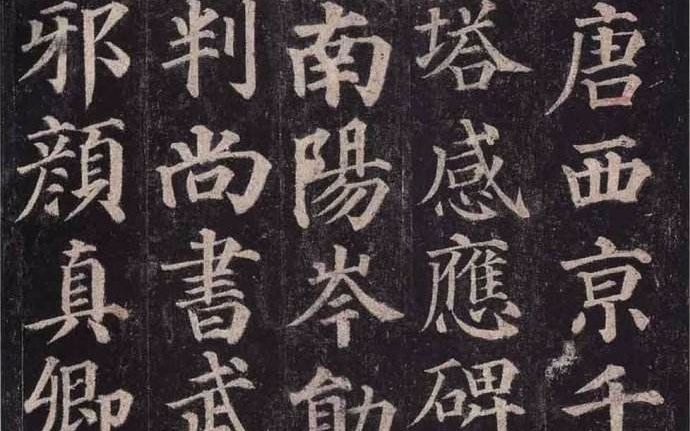 唐西京千
塔感應碑
南陽岑勛
判尚書武
邪顏真卿